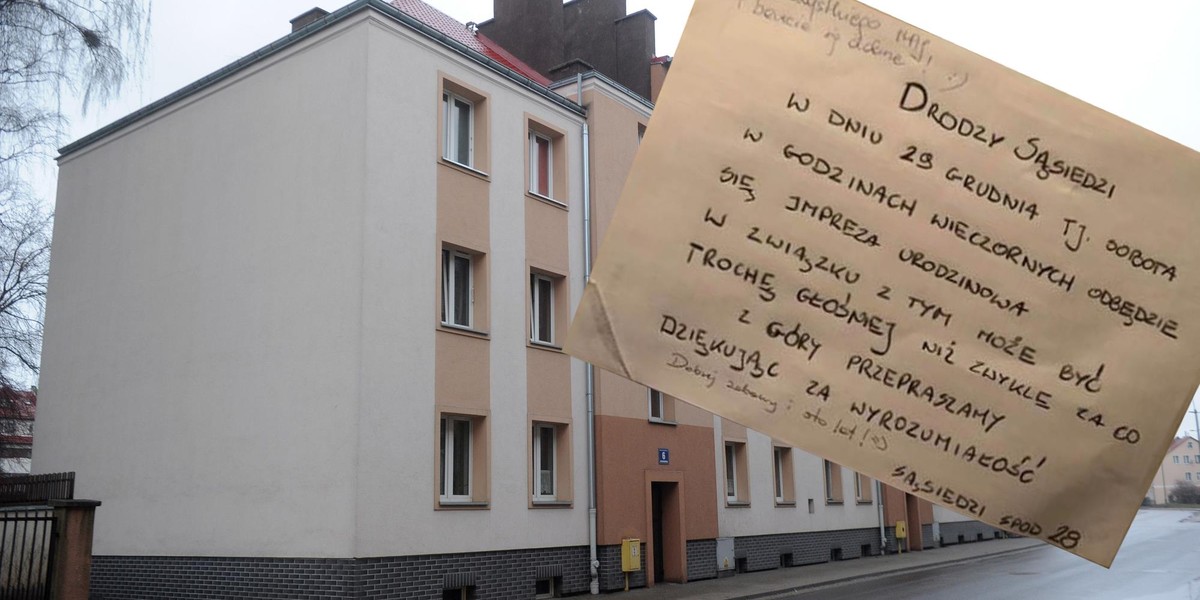 i bawcie się dobrze! :)
DRODZY SĄSIEDZI
W DNIU 29 GRUDNIA TJ. SOBOTA
W GODZINACH WIECZORNYCH ODBĘDZIE
SIĘ IMPREZA URODZINOWA
W ZWIĄZKU Z TYM MOŻE BYĆ
TROCHĘ GŁOŚNIEJ NIŻ ZWYKLE ZA CO
Z GÓRY PRZEPRASZAMY
DZIĘKUJĄC ZA WYROZUMIAŁOŚĆ
Dobrej zabawy i sto lat! :)
SĄSIEDZI SPOD 28
6